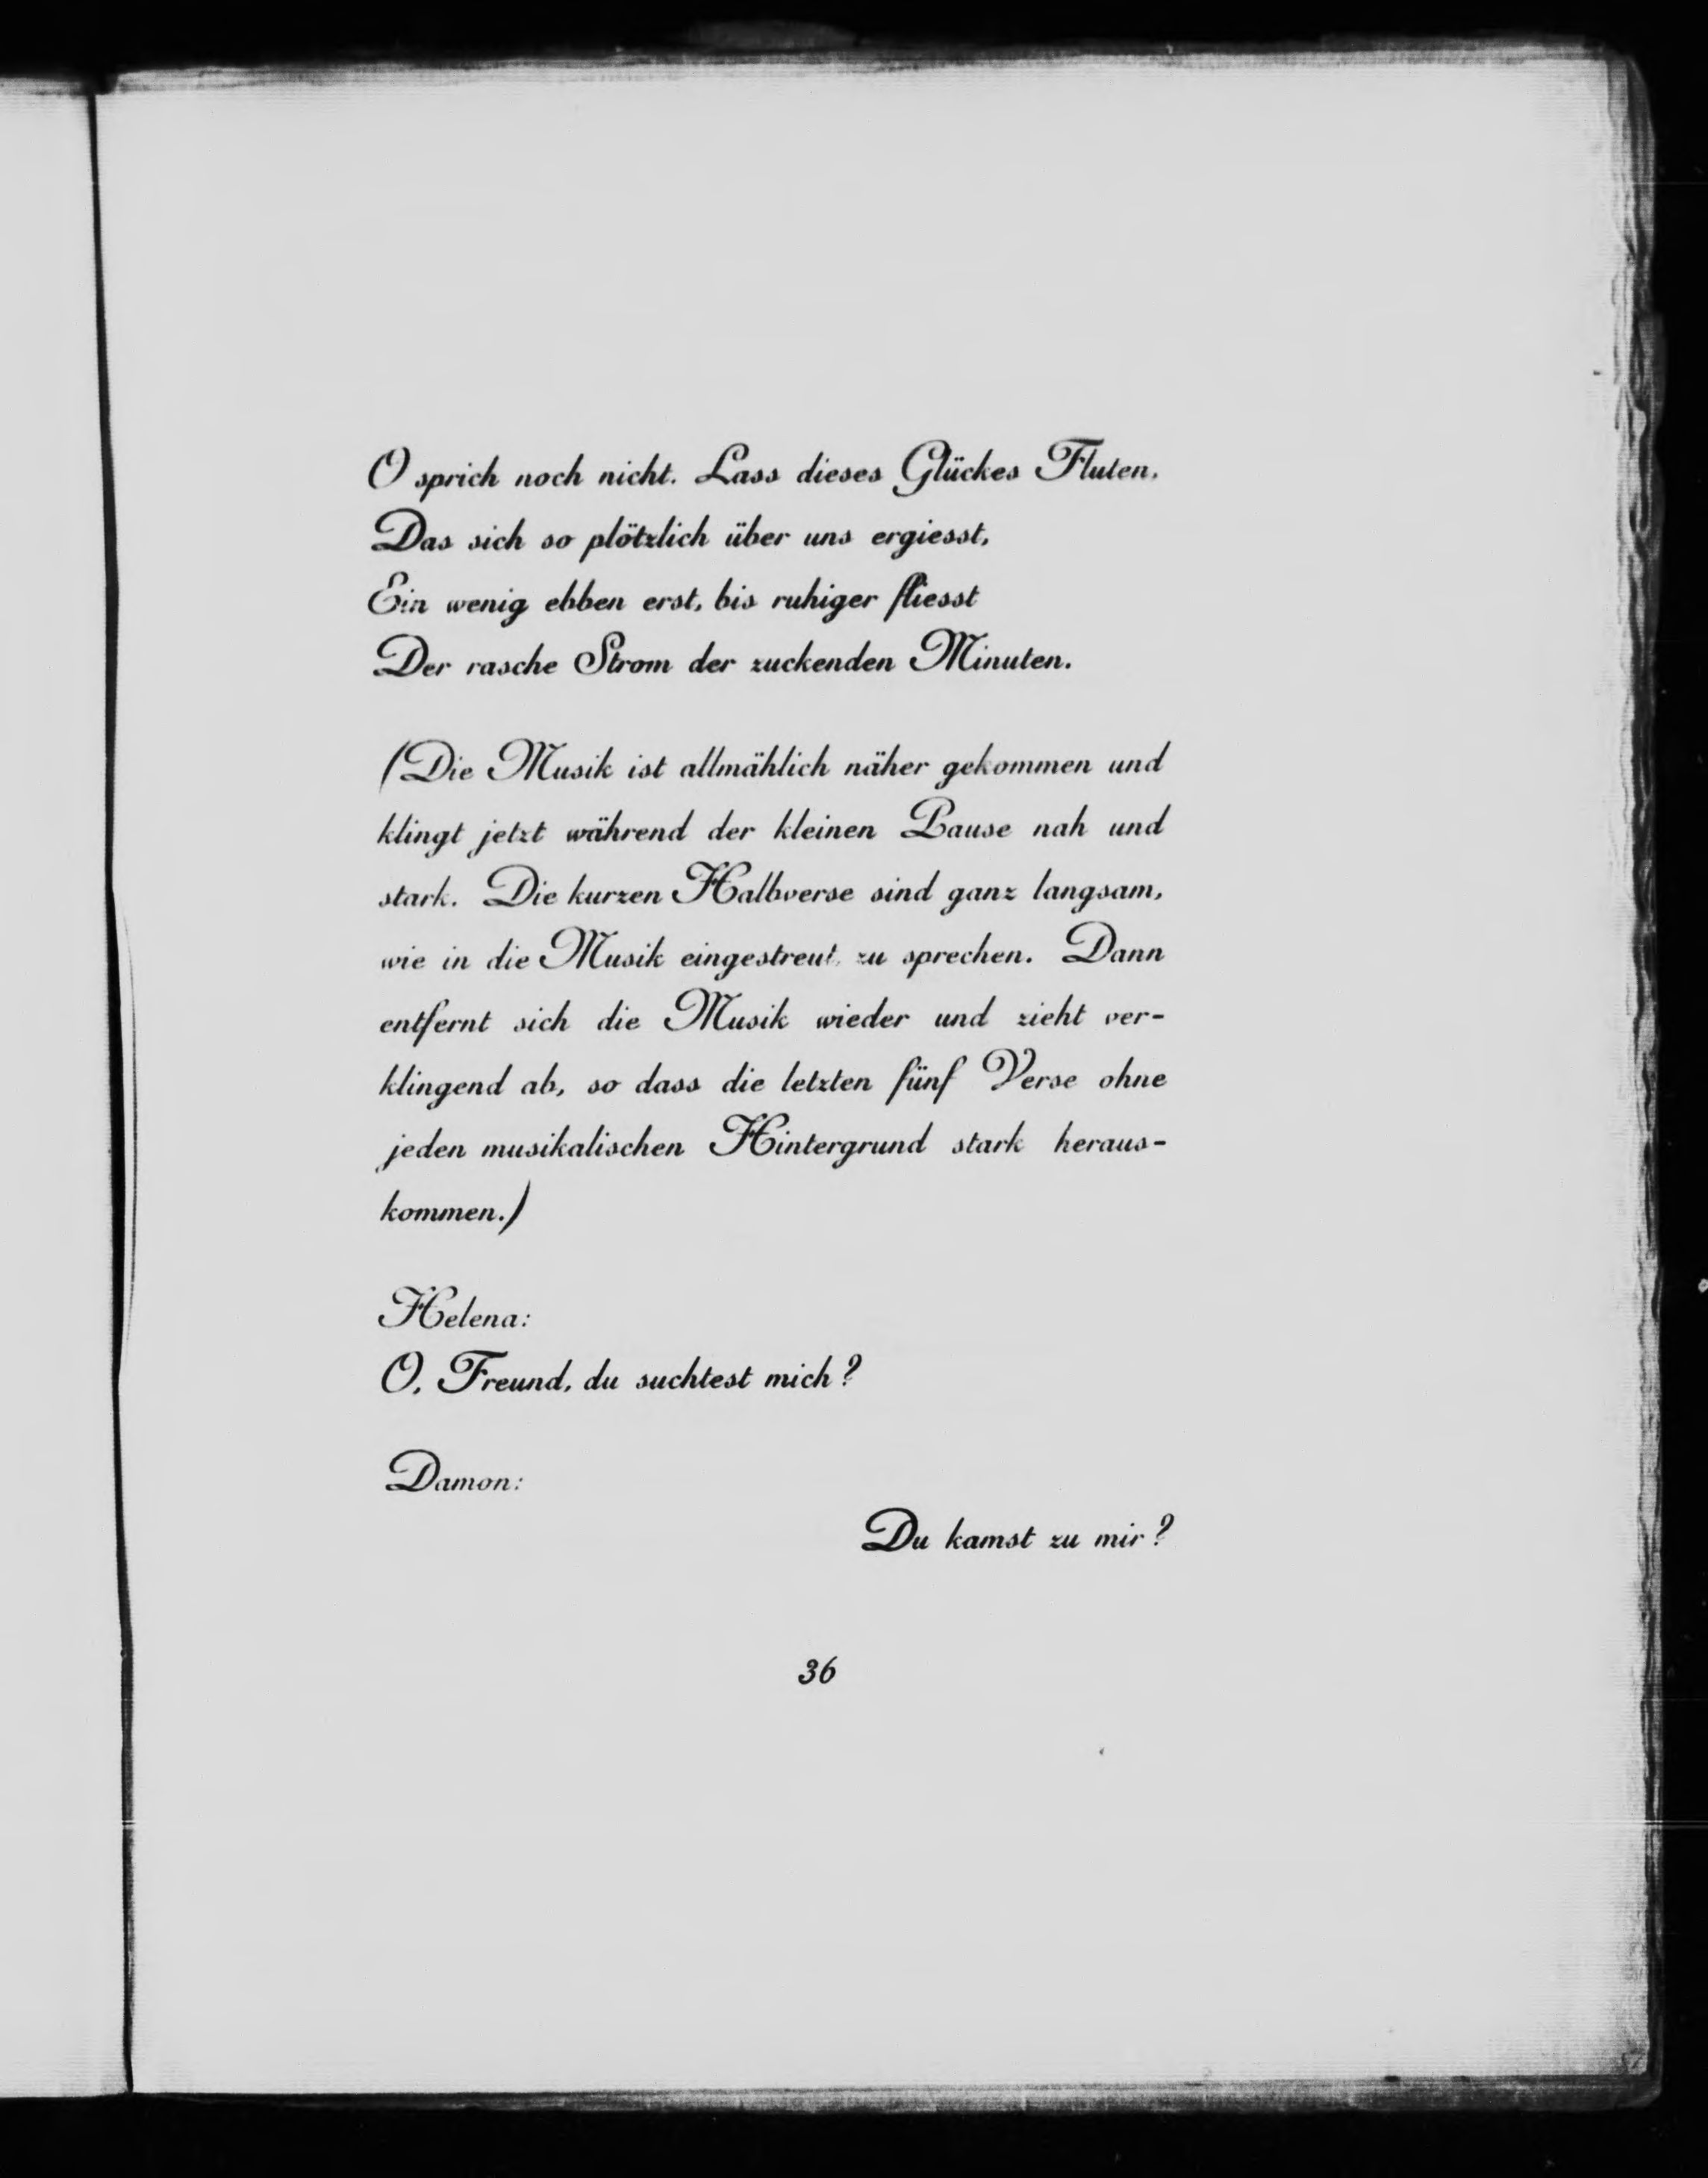 O sprich noch nicht. Lass dieses Glückes Fluten,
Das sich so plötzlich über uns ergiesst,
Ein wenig ebben erst, bis ruhiger fliesst
Der rasche Strom der zuckenden Minuten.
(Die Musik ist allmählich näher gekommen und
klingt jetzt während der kleinen Pause nah und
stark. Die kurzen Halbverse sind ganz langsam,
wie in die Musik eingestreut, zu sprechen. Dann
entfernt sich die Musik wieder und zieht ver-
klingend ab, so dass die letzten fünf Verse ohne
jeden musikalischen Hintergrund stark heraus-
kommen.)
Helena:
O, Freund, du suchtest mich?
Damon:
Du kamst zu mir?
36